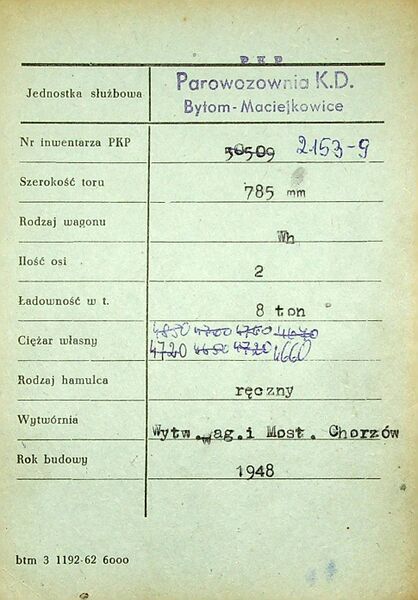 PKP
Jednostka służbowa Parowozownia K.D.
Bytom-Maciejkowice
Nr inwentarza PKP 56509 2153-9
Szerokość toru 785 mm
Rodzaj wagonu Wh
Ilość osi 2
Ładowność w t. 8 ton
4850 4700 4760 4640
Ciężar własny 4720 4650 4720 4660
Rodzaj hamulca ręczny
Wytwórnia Wytw.wag.i Most. Chorzów
Rok budowy 1948
btm 3 1192-62 6000